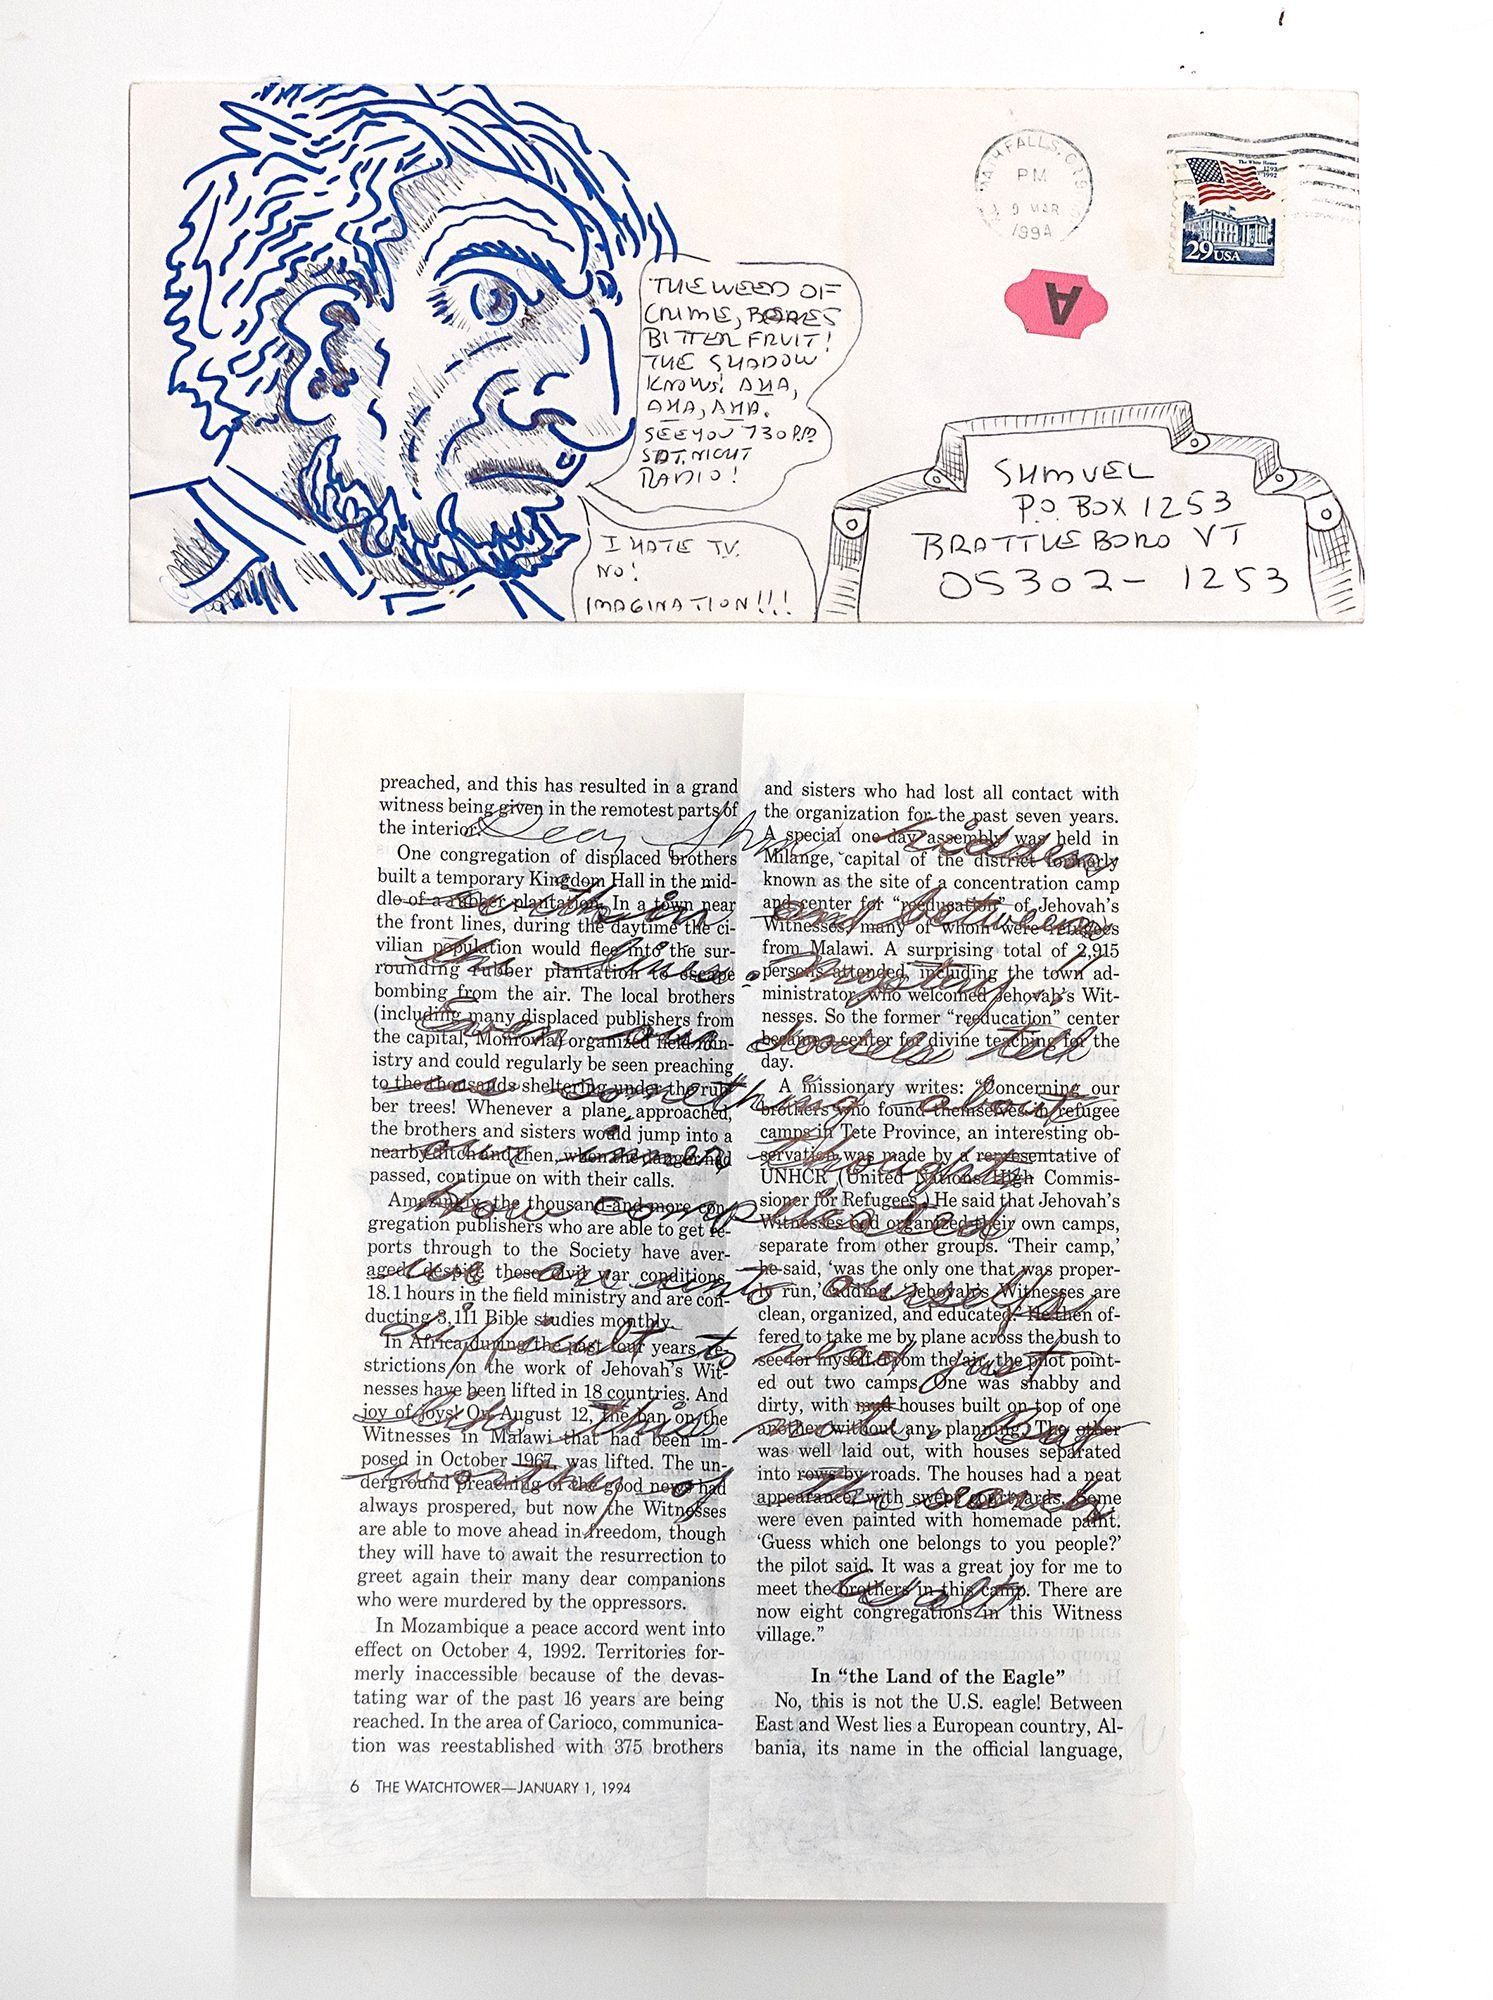 PM
9 MAR
1994
The White House
1792
1992
29 USA
A
THE WEED OF
CRIME, BEARS
BITTER FRUIT!
THE SHADOW
KNOWS! AHA,
AHA, AHA.
SEE YOU 730 P.M
SAT. NIGHT
RADIO!
I HATE TV.
NO!
IMAGINATION!!!
SHMUEL
P.O. BOX 1253
BRATTLEBORO VT
05302-1253
preached, and this has resulted in a grand
witness being given in the remotest parts of
the interior.
One congregation of displaced brothers
built a temporary Kingdom Hall in the mid-
dle of a rubber plantation. In a town near
the front lines, during the daytime the ci-
vilian population would flee into the sur-
rounding rubber plantation to escape
bombing from the air. The local brothers
(including many displaced publishers from
the capital, Monrovia) organized field min-
istry and could regularly be seen preaching
to the thousands sheltering under the rub-
ber trees! Whenever a plane approached,
the brothers and sisters would jump into a
nearby ditch and then, when the danger had
passed, continue on with their calls.
Amazingly, the thousand and more con-
gregation publishers who are able to get re-
ports through to the Society have aver-
aged, despite these civil war conditions,
18.1 hours in the field ministry and are con-
ducting 3,111 Bible studies monthly.
In Africa during the past four years re-
strictions on the work of Jehovah's Wit-
nesses have been lifted in 18 countries. And
joy of joys! On August 12, the ban on the
Witnesses in Malawi that had been im-
posed in October 1967 was lifted. The un-
derground preaching of the good news had
always prospered, but now the Witnesses
are able to move ahead in freedom, though
they will have to await the resurrection to
greet again their many dear companions
who were murdered by the oppressors.
In Mozambique a peace accord went into
effect on October 4, 1992. Territories for-
merly inaccessible because of the devas-
tating war of the past 16 years are being
reached. In the area of Carioco, communica-
tion was reestablished with 375 brothers
and sisters who had lost all contact with
the organization for the past seven years.
A special one-day assembly was held in
Milange, capital of the district formerly
known as the site of a concentration camp
and center for "reeducation" of Jehovah's
Witnesses, many of whom were refugees
from Malawi. A surprising total of 2,915
persons attended, including the town ad-
ministrator who welcomed Jehovah's Wit-
nesses. So the former "reeducation" center
became a center for divine teaching for the
day.
A missionary writes: "Concerning our
brothers who found themselves in refugee
camps in Tete Province, an interesting ob-
servation was made by a representative of
UNHCR (United Nations High Commis-
sioner for Refugees.) He said that Jehovah's
Witnesses had organized their own camps,
separate from other groups. 'Their camp,'
he said, 'was the only one that was proper-
ly run,' adding, 'Jehovah's Witnesses are
clean, organized, and educated.' He then of-
fered to take me by plane across the bush to
see for myself. From the air, the pilot point-
ed out two camps. One was shabby and
dirty, with mud houses built on top of one
another without any planning. The other
was well laid out, with houses separated
into rows by roads. The houses had a neat
appearance, with swept courtyards. Some
were even painted with homemade paint.
'Guess which one belongs to you people?'
the pilot said. It was a great joy for me to
meet the brothers in this camp. There are
now eight congregations in this Witness
village."
In "the Land of the Eagle"
No, this is not the U.S. eagle! Between
East and West lies a European country, Al-
bania, its name in the official language,
6 THE WATCHTOWER—JANUARY 1, 1994
Dear hidden
within and between
the lines: mystery!
Even our doodels tell
us something about
our inner thoughts
How complicated
we are unto ourselfs
difficult to read just
like this note. But
worthy of the search.
Walt